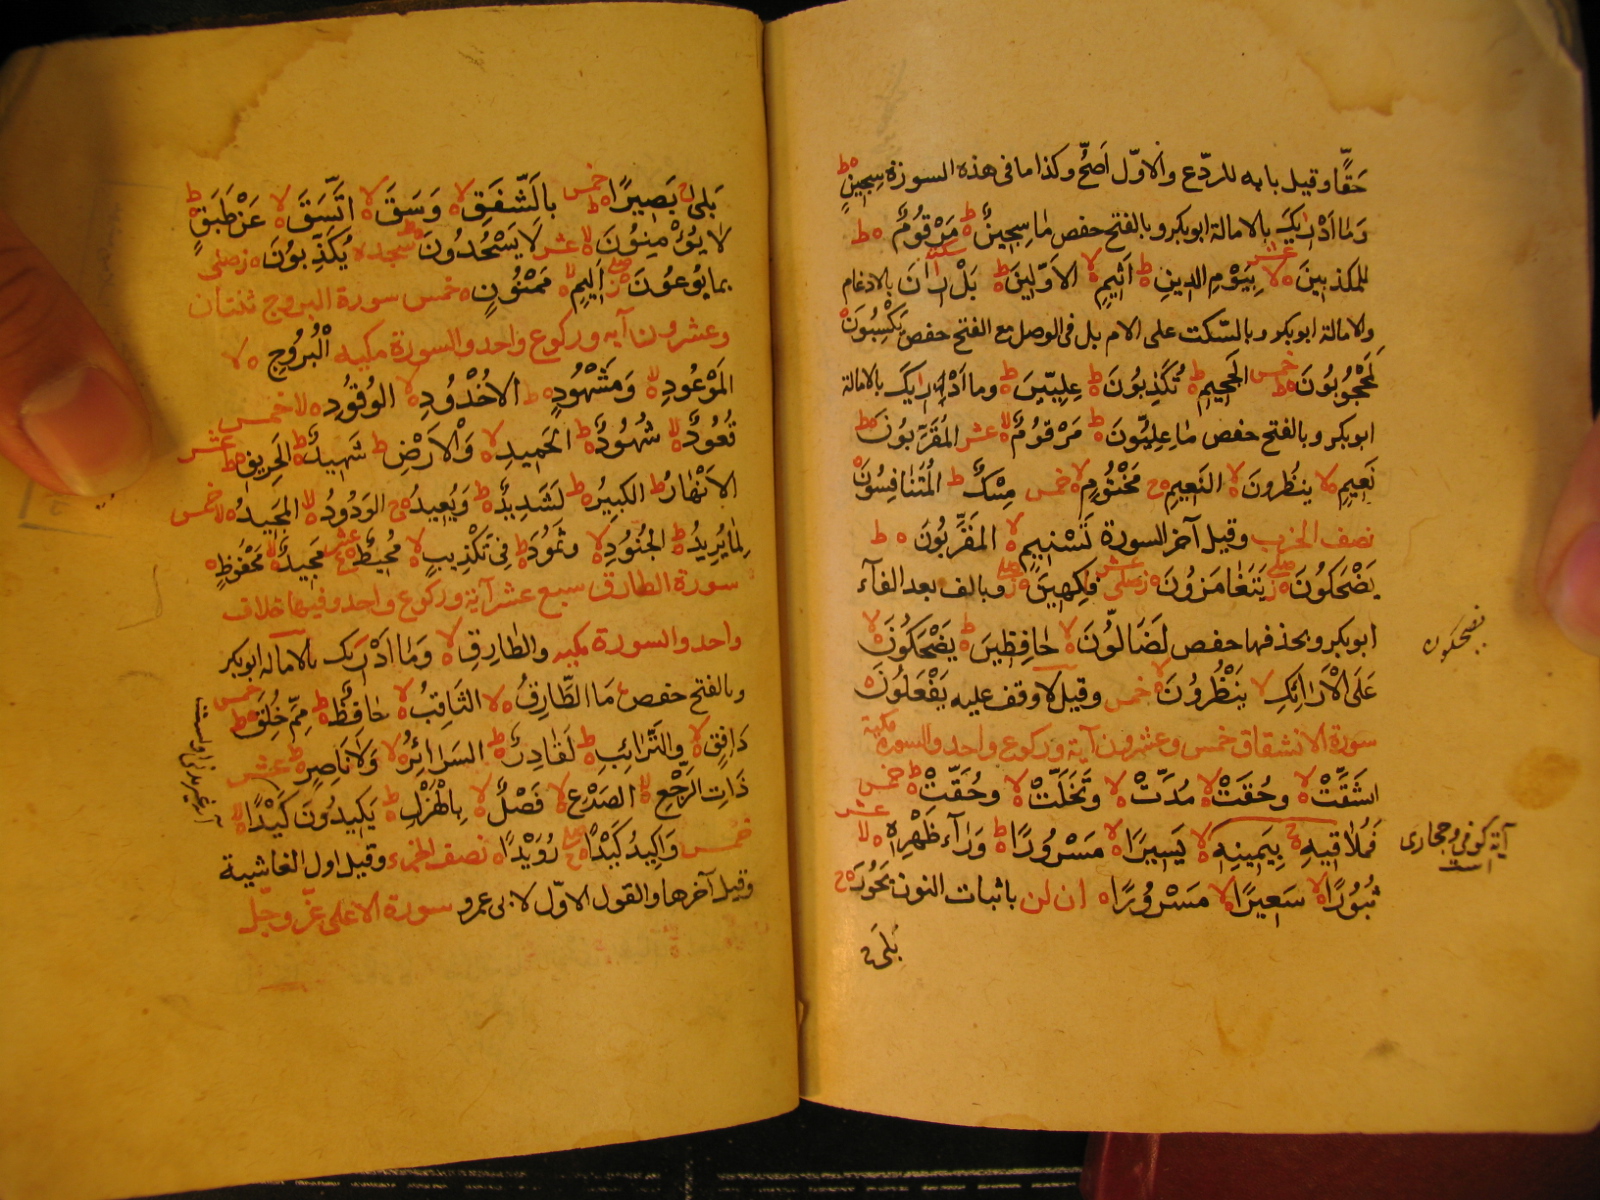 حَقًّا وقيل بابه للردّع والاوّل اَصَحّ وكذا ما فى هذه السورة سِجِّينٍ ه ط
وَمَا اَدْرٰيكَ بالامالة ابوبكر وبالفتح حفص مَا سِجِّينٌ ه ط مَرْقُومٌ ه ط
للمكذبينَ ه لا عشر بِيَوْمِ الدينِ ه ط اَثِيمٍ ه لا الاَوّلِينَ ه ط بَلْ سكته رَانَ بالادغام
والامالة ابوبكر وبالسّكت على الام بل فى الوصل مع الفتح حفص يَكْسِبُونَ ه
لَمَحْجُوبُونَ ه ط خمس الجَحِيمِ ه ط تُكَذِّبُونَ ه ط عِلِيّينَ ه ط وما اَدْرٰيكَ بالامالة
ابوبكر وبالفتح حفص مَا عِلِيُّونَ ه ط مَرْقُومٌ ه لا عشر المُقَرَّبُونَ ه ط
نَعِيمٍ ه لا ينظُرونَ ه لا النَعِيمِ ه ج مَخْتُومٍ ه لا خمس مِسْكٌ ط المُتَنَافِسُونَ ه
نصف الحزب وقيل آخر السورة تَسْنِيمٍ ه لا المُقَرَّبُونَ ه ط
يَضْحَكُونَ ه ز صلى يَتَغَامَزُونَ ه ز صلى عشر فَكِهِينَ ه ز صلى وبالف بعد الفآء
ابوبكر وبحذفها حفص لَضَالُّونَ ه لا حَافِظِينَ ه ط يَضْحَكُونَ ه لا
عَلَى الْاَرَائِكِ لا يَنْظُرُونَ ه لا خمس وقيل لا وقف عليه يَفْعَلُونَ ه
سورة الانشقاق خمس وعشرون آية وركوع واحد والسورة مكية
انشَقَّتْ ه لا وحُقَّتْ ه لا مُدَّتْ ه لا وتَخَلَّتْ ه لا وحُقَّتْ ه ط خمس
فَمُلَاقِيهِ ه ج بِيَمِينِهِ ه لا يَسِيرًا ه لا مَسْرُورًا ه ط وَرَآءَ ظَهْرِهِ ه لا عشر
ثُبُورًا ه لا سَعِيرًا ه لا مَسْرُورًا ه ان لن باثبات النون يَحُورَ ه ج
بَلى ج
يضحكون
آية كوفى وحجازى
است
بَلى ج بَصِيرًا ه ط خمس بِالشَّفَقِ ه لا وَسَقَ ه لا اتَّسَقَ ه لا عَنْ طَبَقٍ ه ط
لا يُؤْمِنُونَ ه لا عشر لَا يَسْجُدُونَ ه ط سجده يُكَذِّبُونَ ه ز صلى
بما يُوعُونَ ه ز صلى اَلِيمٍ ه لا مَمْنُونٍ ه خمس سورة البروج ثنتان
وعشرون آيه وركوع واحد والسورة مكيه الْبُرُوجِ ه لا
المَوْعُودِ ه لا وَمَشْهُودٍ ه ط الاُخْدُودِ ه لا الوُقُودِ ه لا خمس
قُعُودٌ ه لا شُهُودٌ ه ط الحَمِيدِ ه لا وَالْاَرْضِ ط شَهِيدٌ ه ط الحَرِيقِ ه ط عشر
الاَنْهَارُ ه ط الكبيرُ ه ط لَشَدِيدٌ ه ط وَيُعِيدُ ه ج الوَدُودُ ه لا المَجِيدُ ه لا خمس
لِمَا يُرِيدُ ه ط الجُنُودِ ه لا وثَمُودَ ه ط فى تَكْذِيبٍ ه لا مُحِيطٌ ه ج عشر مَجِيدٌ ه لا مَحْفُوظٍ ه
سورة الطارق سبع عشر آية وركوع واحد وفيها خلاف
واحد والسورة مكيه والطَّارِقِ ه لا وَمَا اَدْرٰيكَ بالاماله ابوبكر
وبالفتح حفص مَا الطَّارِقُ ه لا الثَاقِبُ ه لا حَافِظٌ ه ط مِمَّ خُلِقَ ه ط خمس
دَافِقٍ ه لا والتَّرَائِبِ ه ط لَقَادِرٌ ه ط السَرَائِرُ ه لا وَلَا نَاصِرٍ ه ط عشر
ذَاتِ الرَّجْعِ ه لا الصَدْعِ ه لا فَصْلٌ ه لا بِالْهَزْلِ ه ط يَكِيدُونَ كَيْدًا ه لا
خمس وَاَكِيدُ كَيْدًا ه ج صلى رُوَيْدًا ه نصف الجزء وقيل اول الغاشية
وقيل آخرها والقول الاوّل لابى عمرو سورة الاعلى عزّ وجلّ